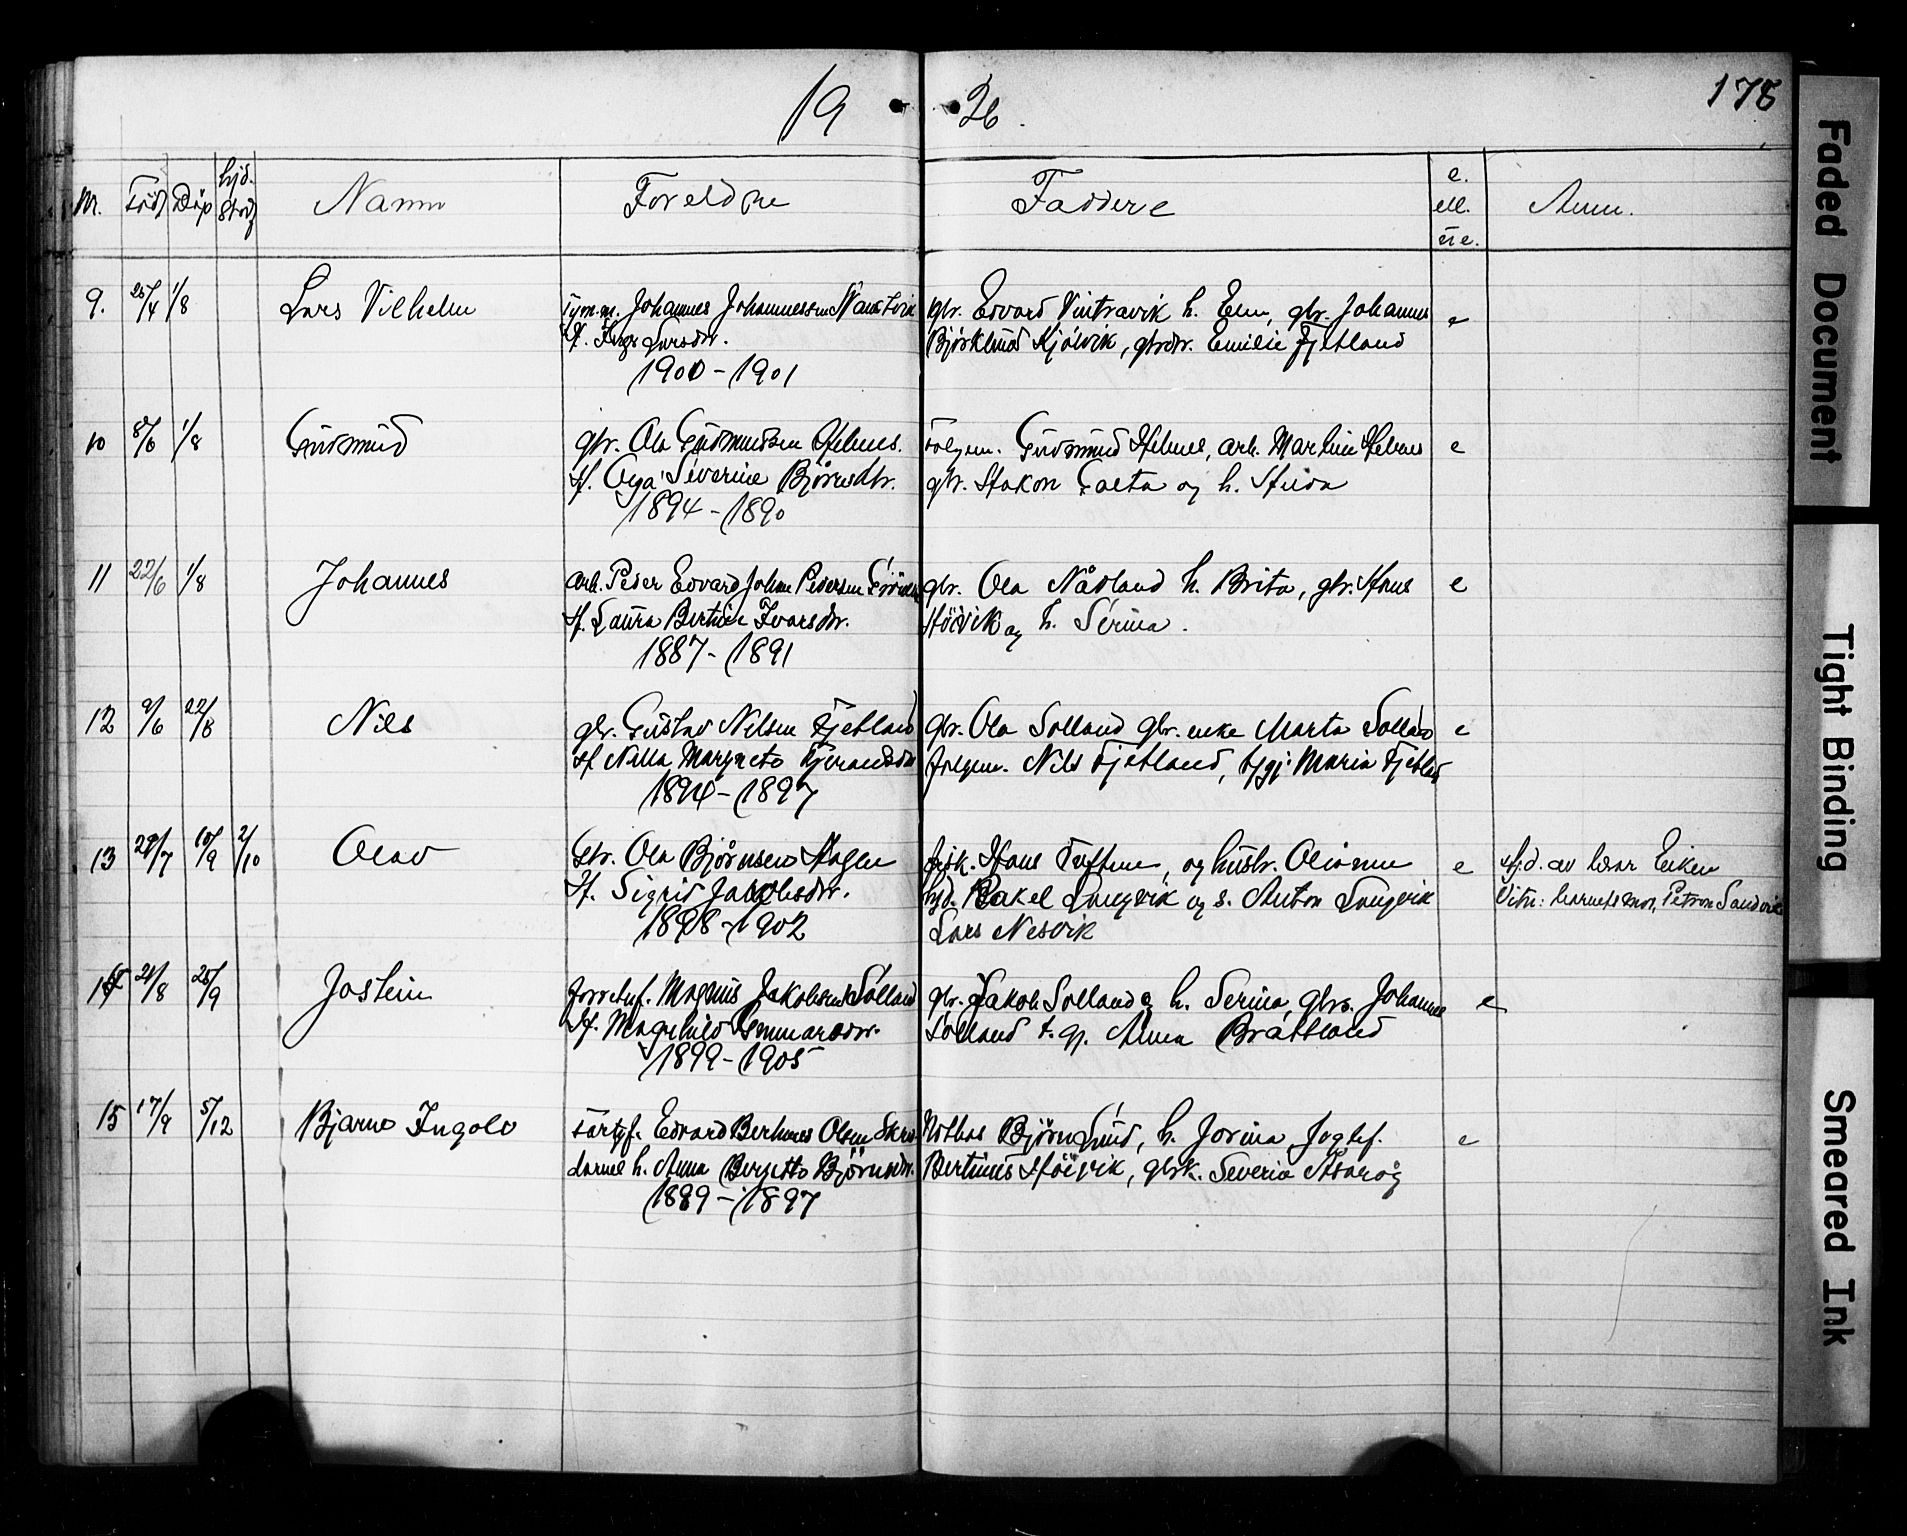 19 26.
175
Nr. Föd Döp hjd. Stad Namn Foreldre Faddere e. ell. ue. Anm.
9. 25/4 1/8 Lars Vilhelm
Johannes Johannessen
H. Inga Larsdtr.
1900 - 1901
gbr. Edvard Vintravik h. Elen, gbr. Johannes e
Björklund Kjölvik, gbrdtr. Emilie Fjetland
10 8/6 1/8 Gudmund
gbr. Ola Gudmundsen Helmes.
H. Olga Severine Björnsdtr.
1894 - 1890
folgem. Gudmund Helmes, arb. Martin Helmes e
gbr. Hakon og h.
11 22/6 1/8 Johannes
arb. Peder Edvard Johan Pedersen
H. Laura Bertine Ivarsdtr.
1887 - 1891
gbr. Ola Nådland h. Brita, gbr. Hans e
Höivik og h. Serina.
12 9/6 22/8 Nils
gbr. Gustav Nilsen Fjetland
H. Nilla Margreta
1894 - 1897
gbr. Ola Solland gbr. enke Marta Solland e
folgem. Nils Fjetland, tjgj. Maria Fjetland
13 29/7 10/9 2/10 Olav
gbr. Ola Björnsen Hagen
H. Sigrid Jakobsdtr.
1898 - 1902
fisk. Hans Toften, og hustr. e
Rakel Langvik og s. Anton Langvik
Lars Nesvik
Hjd. av lærar Eiken
Vitn: barnets mor, Petron Sandvik
14 21/8 25/9 Jostein
Magnus Jakobsen Solland
H. Magnhild
1899 - 1905
gbr. Jakob Solland og h. Serina, gbrs. Johannes e
Solland t. gj. Anna Brattland
15 17/9 5/12 Bjarne Ingolv
Edvard Berhines Olsen
h. Anna Bergitte Björnsdtr.
1889 - 1897
Björnsund, h. Jorina, e
Bertinus Höivik, gbrk. Severine
Faded Document
Tight Binding
Smeared Ink